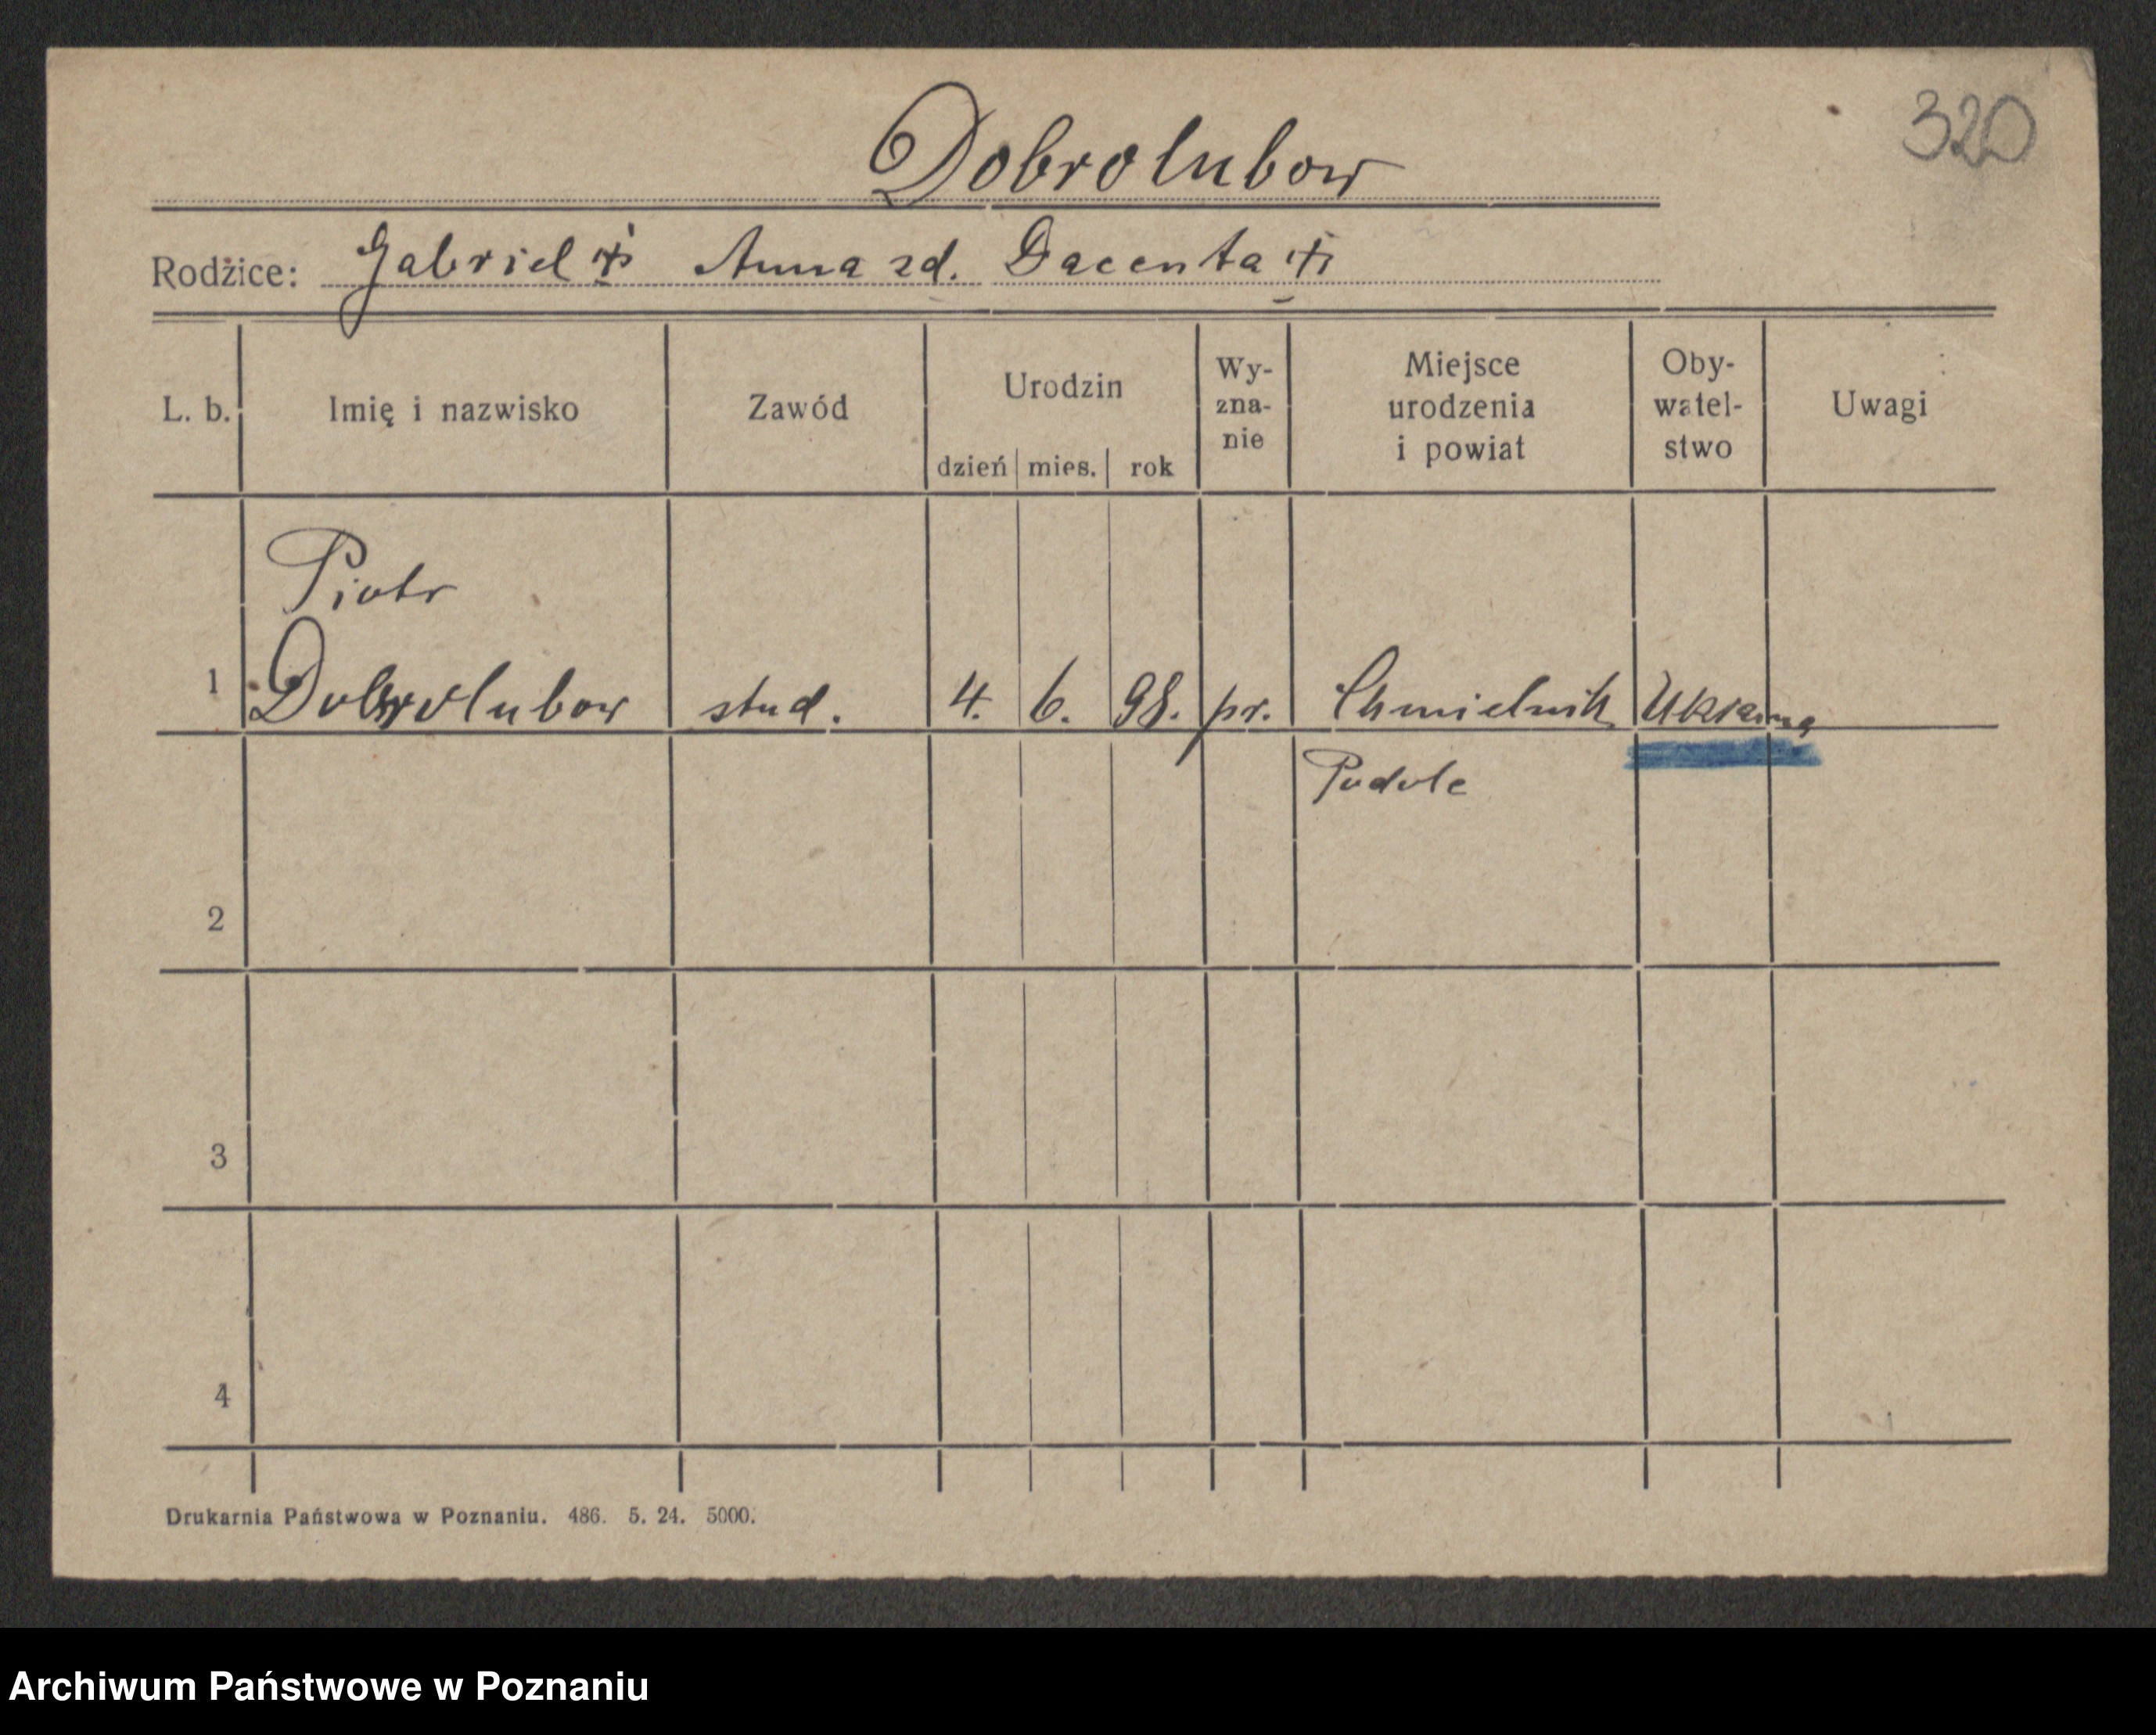 320
Dobrolubow
Rodzice: Gabriel Anna zd. Dacenta
L. b. Imię i nazwisko Zawód Urodzin dzień mies. rok Wy- zna- nie Miejsce urodzenia i powiat Oby- watel- stwo Uwagi
Piotr
1 Dobrolubow stud. 4. 6. 98. pr. Chmielnik Ukraina
Podole
2
3
4
Drukarnia Państwowa w Poznaniu. 486. 5. 24. 5000.
Archiwum Państwowe w Poznaniu